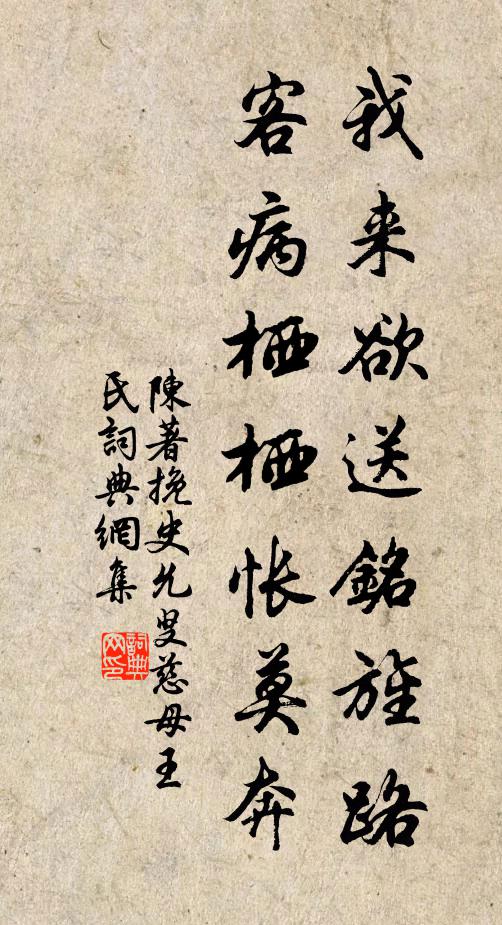 我来欲送銘旌路
客病栖栖怅莫奔
陳著挽史允叟慈母王
氏詞典網集
詞典网印